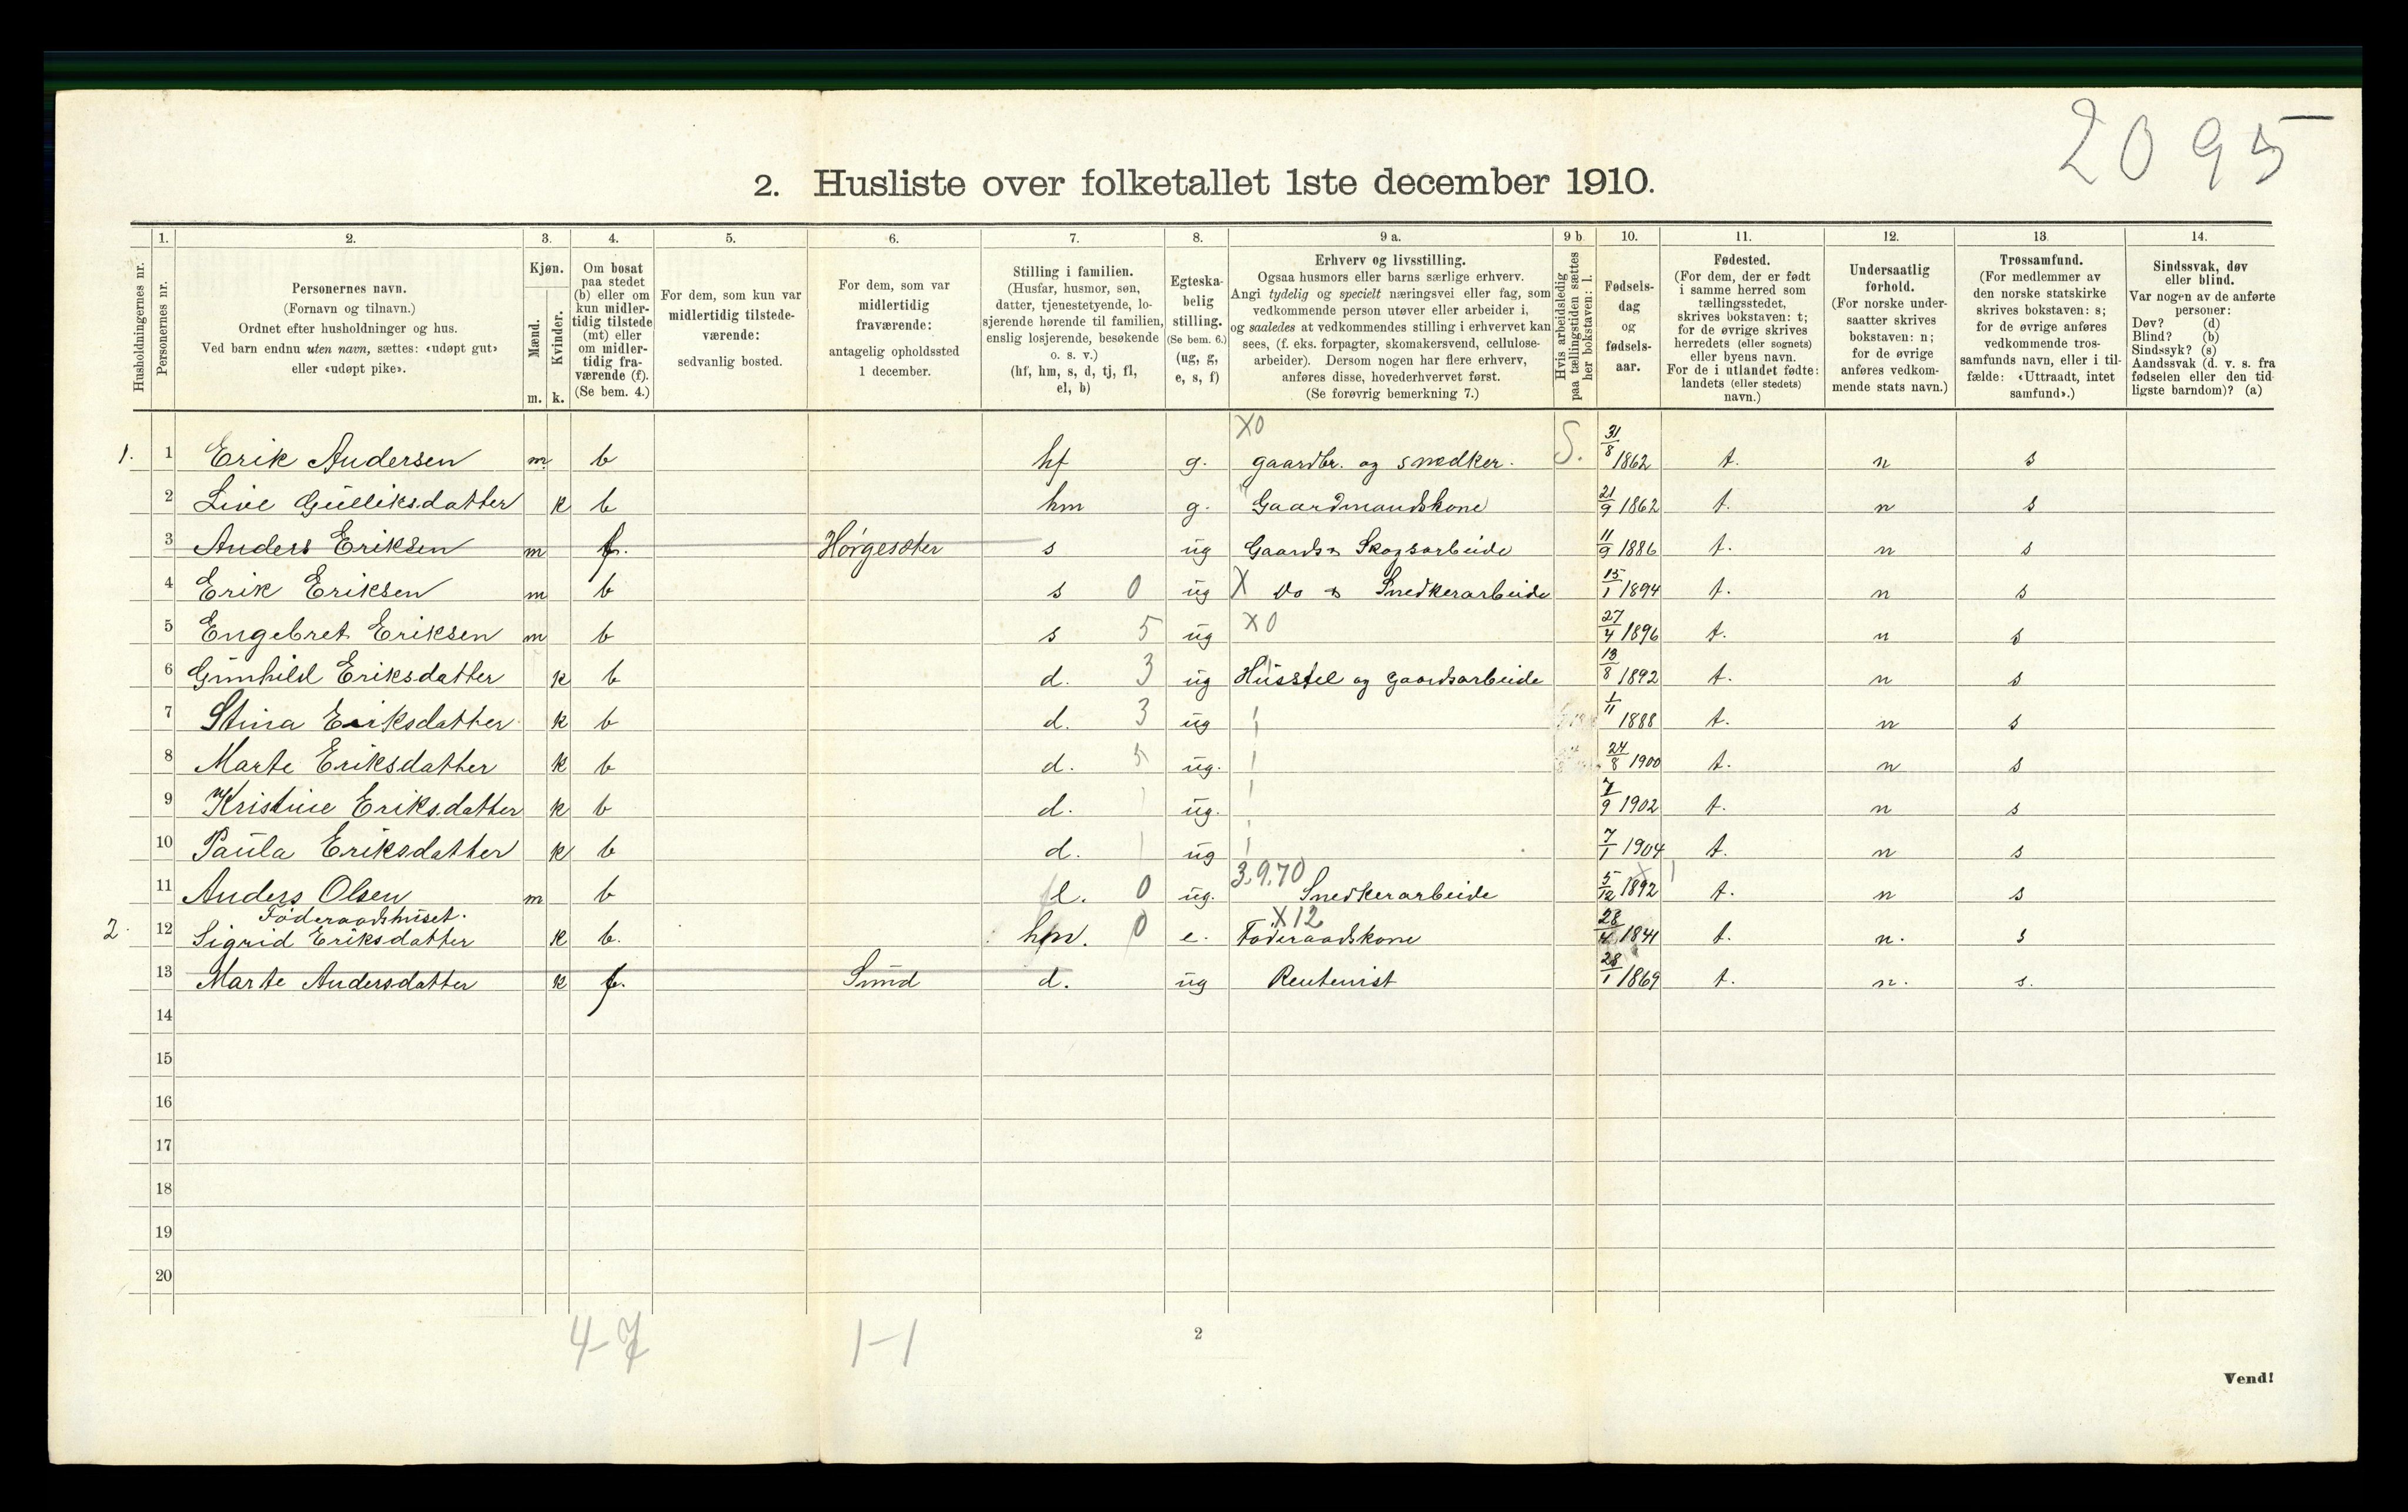 2095
2. Husliste over folketallet 1ste december 1910.
Husholdningernes nr.
1. Personernes nr.
2. Personernes navn.
(Fornavn og tilnavn.)
Ordnet efter husholdninger og hus.
Ved barn endnu uten navn, sættes: «udøpt gut»
eller «udøpt pike».
3. Kjøn.
Mænd. Kvinder.
m. k.
4. Om bosat
paa stedet
(b) eller om
kun midler-
tidig tilstede
(mt) eller
om midler-
tidig fra-
værende (f).
(Se bem. 4.)
5. For dem, som kun var
midlertidig tilstede-
værende:
sedvanlig bosted.
6. For dem, som var
midlertidig
fraværende:
antagelig opholdssted
1 december.
7. Stilling i familien.
(Husfar, husmor, søn,
datter, tjenestetyende, lo-
sjerende hørende til familien,
enslig losjerende, besøkende
o. s. v.)
(hf, hm, s, d, tj, fl,
el, b)
8. Egteska-
belig
stilling.
(Se bem. 6.)
(ug, g,
e, s, f)
9 a. Erhverv og livsstilling.
Ogsaa husmors eller barns særlige erhverv.
Angi tydelig og specielt næringsvei eller fag, som
vedkommende person utøver eller arbeider i,
og saaledes at vedkommendes stilling i erhvervet kan
sees, (f. eks. forpagter, skomakersvend, cellulose-
arbeider). Dersom nogen har flere erhverv,
anføres disse, hovederhvervet først.
(Se forøvrig bemerkning 7.)
9 b Hvis arbeidsledig
paa tællingstiden sættes
her bokstaven: l.
10. Fødsels-
dag
og
fødsels-
aar.
11. Fødested.
(For dem, der er født
i samme herred som
tællingsstedet,
skrives bokstaven: t;
for de øvrige skrives
herredets (eller sognets)
eller byens navn.
For de i utlandet fødte:
landets (eller stedets)
navn.)
12. Undersaatlig
forhold.
(For norske under-
saatter skrives
bokstaven: n;
for de øvrige
anføres vedkom-
mende stats navn.)
13. Trossamfund.
(For medlemmer av
den norske statskirke
skrives bokstaven: s;
for de øvrige anføres
vedkommende tros-
samfunds navn, eller i til-
fælde: «Uttraadt, intet
samfund».)
14. Sindssvak, døv
eller blind.
Var nogen av de anførte
personer:
Døv? (d)
Blind? (b)
Sindssyk? (s)
Aandssvak (d. v. s. fra
fødselen eller den tid-
ligste barndom)? (a)
X0
1. 1 Erik Andersen m. b hf g. gaardbr. og snedker. S. 31/8 1862 t. n s
2 Live Gulliksdatter k b hm g. Gaardmandskone 21/9 1862 t. n s
3 Anders Eriksen m f. Hørgesæter s ug Gaards & Skogsarbeide 11/9 1886 t. n s
4 Erik Eriksen m b s 0 ug X do & Snedkerarbeide 15/1 1894 t. n s
5 Engebret Eriksen m b s 5 ug X0 27/4 1896 t. n s
6 Gunhild Eriksdatter k b d. 3 ug Husstel og gaardsarbeide 13/8 1892 t. n s
7 Stina Eriksdatter k b d. 3 ug 1/11 1888 t. n s
8 Marte Eriksdatter k b d. 5 ug. 24/8 1900 t. n s
9 Kristine Eriksdatter k b d. ug. 7/9 1902 t. n s
10 Paula Eriksdatter k b d. ug 7/1 1904 t. n s
3.9.70
11 Anders Olsen m b fl. 0 ug. Snedkerarbeide 5/12 1892 t. n s
Føderaadshuset. X12
2. 12 Sigrid Eriksdatter k b. hm. 0 e. Føderaadskone 28/4 1841 t. n. s
13 Marte Andersdatter k f. Sund d. ug Rentenist 28/1 1869 t. n. s.
14
15
16
17
18
19
20
4-7 1-1
2
Vend!